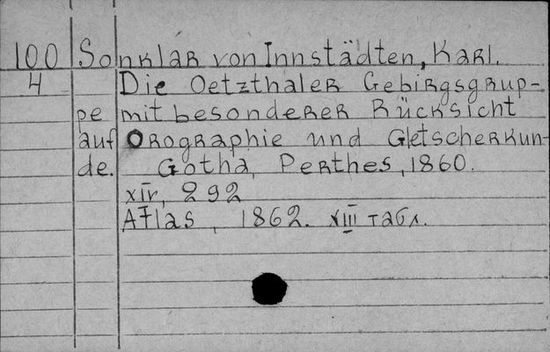 100 Sonklar von Innstädten, Karl.
4 Die Oetzthaler Gebirgsgrup-
pe mit besonderer Rücksicht
auf Orographie und Gletscherkun-
de. Gotha, Perthes, 1860.
XIV, 292
Atlas, 1862. XIII табл.